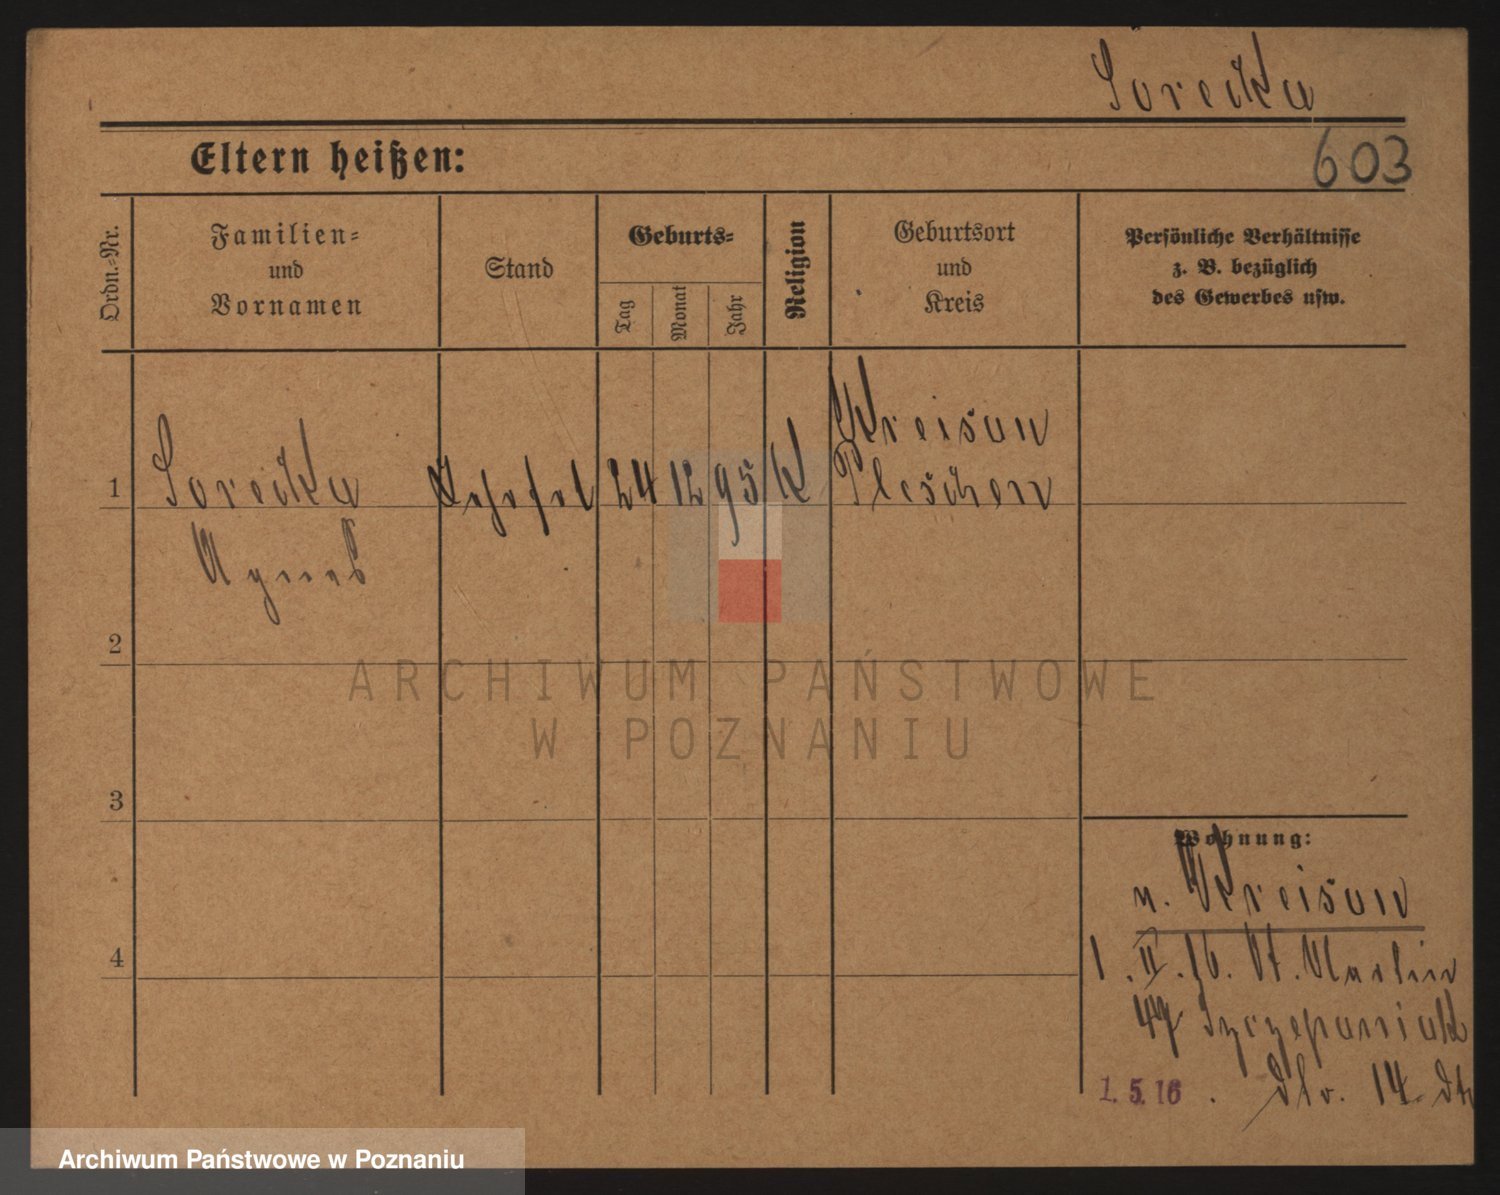 Sorecka
Eltern heißen:
603
Ordn.-Nr.
Familien-
und
Vornamen
Stand
Geburts-
Tag
Monat
Jahr
Religion
Geburtsort
und
Kreis
Persönliche Verhältnisse
z. B. bezüglich
des Gewerbes usw.
1 Sorecka 24 12 95 K
Pleschen
Agnes
2
3
4
Wohnung:
1. II. 16. St. Martin
47 Szczepaniak
1. 5. 16 . 14.
ARCHIWUM PAŃSTWOWE
W POZNANIU
Archiwum Państwowe w Poznaniu